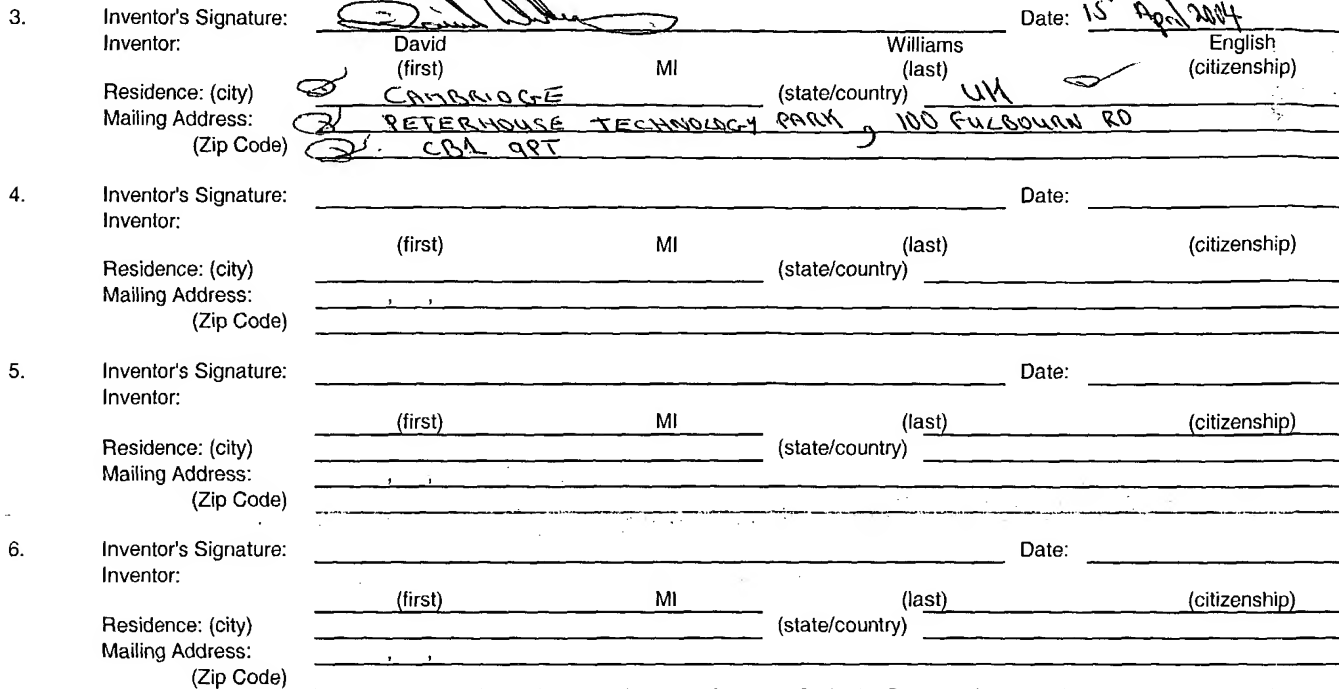 3. Inventor's Signature: Date: 15 April 2004
Inventor: David Williams English
(first) MI (last) (citizenship)
Residence: (city) CAMBRIDGE (state/country) UK
Mailing Address: PETERHOUSE TECHNOLOGY PARK, 100 FULBOURN RD
(Zip Code) CB1 9PT
4. Inventor's Signature: Date:
Inventor:
(first) MI (last) (citizenship)
Residence: (city) (state/country)
Mailing Address: , ,
(Zip Code)
5. Inventor's Signature: Date:
Inventor:
(first) MI (last) (citizenship)
Residence: (city) (state/country)
Mailing Address: , ,
(Zip Code)
6. Inventor's Signature: Date:
Inventor:
(first) MI (last) (citizenship)
Residence: (city) (state/country)
Mailing Address: , ,
(Zip Code)